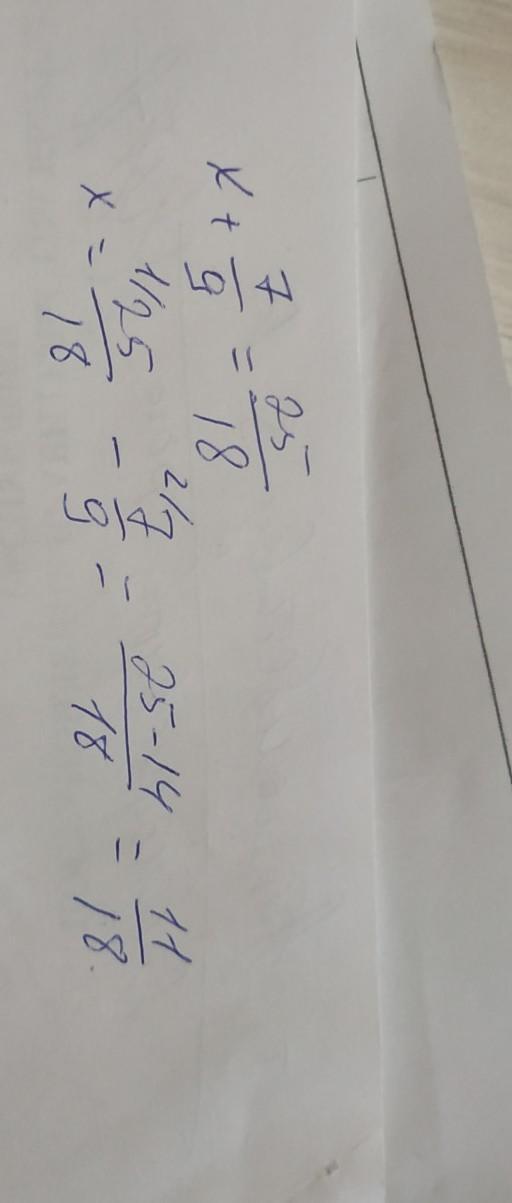 x + 7/9 = 25/18
x = 1/25/18 - 2/7/9 = 25-14/18 = 11/18